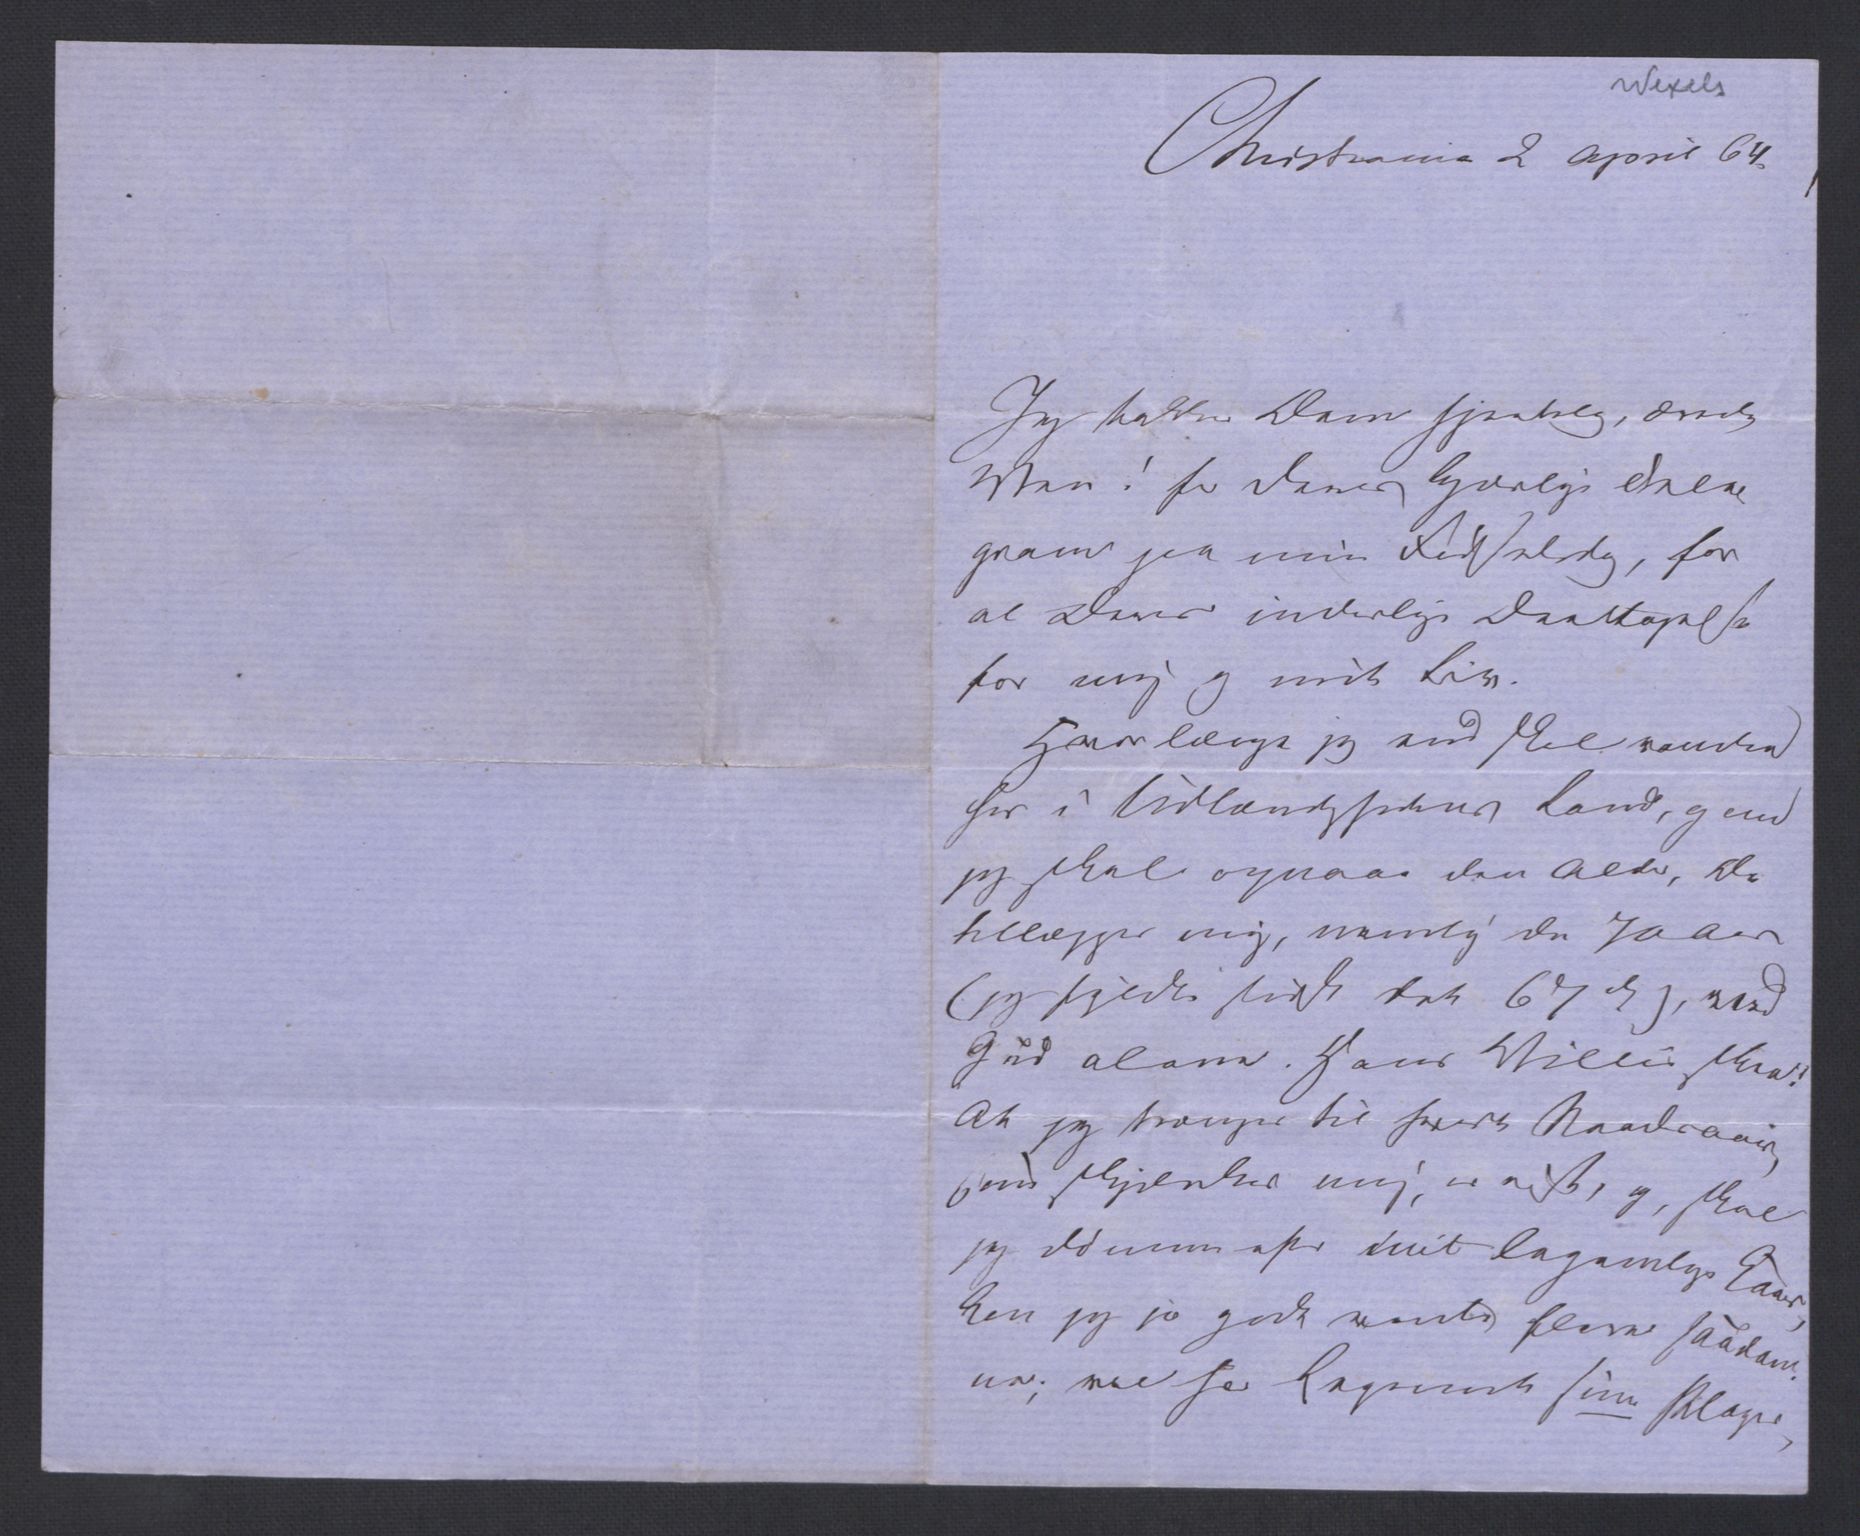 Wexels
Christiania 2 April 64.
Jeg takker Dem hjertelig, ærede
Wen! for Deres kjærlige Tele
gram paa min Fødselsdag, for
al Deres inderlige Deeltagelse
for mig og mit Liv.
Hvorlænge jeg end skal vandre
her i Udlændighedens Land, og om
jeg skal opnaae den Alder, De
tillægger mig, nemlig de 70 Aar
(jeg fyldte sidst det 67de), veed
Gud alene. Hans Villie skee!
At jeg trænger til hvert Naadeaar,
som skjænkes mig, er vist, og, skal
jeg dømme efter mit legemlige
kan jeg jo godt vente flere saadan-
ne; vel har Legemet sine Plager,